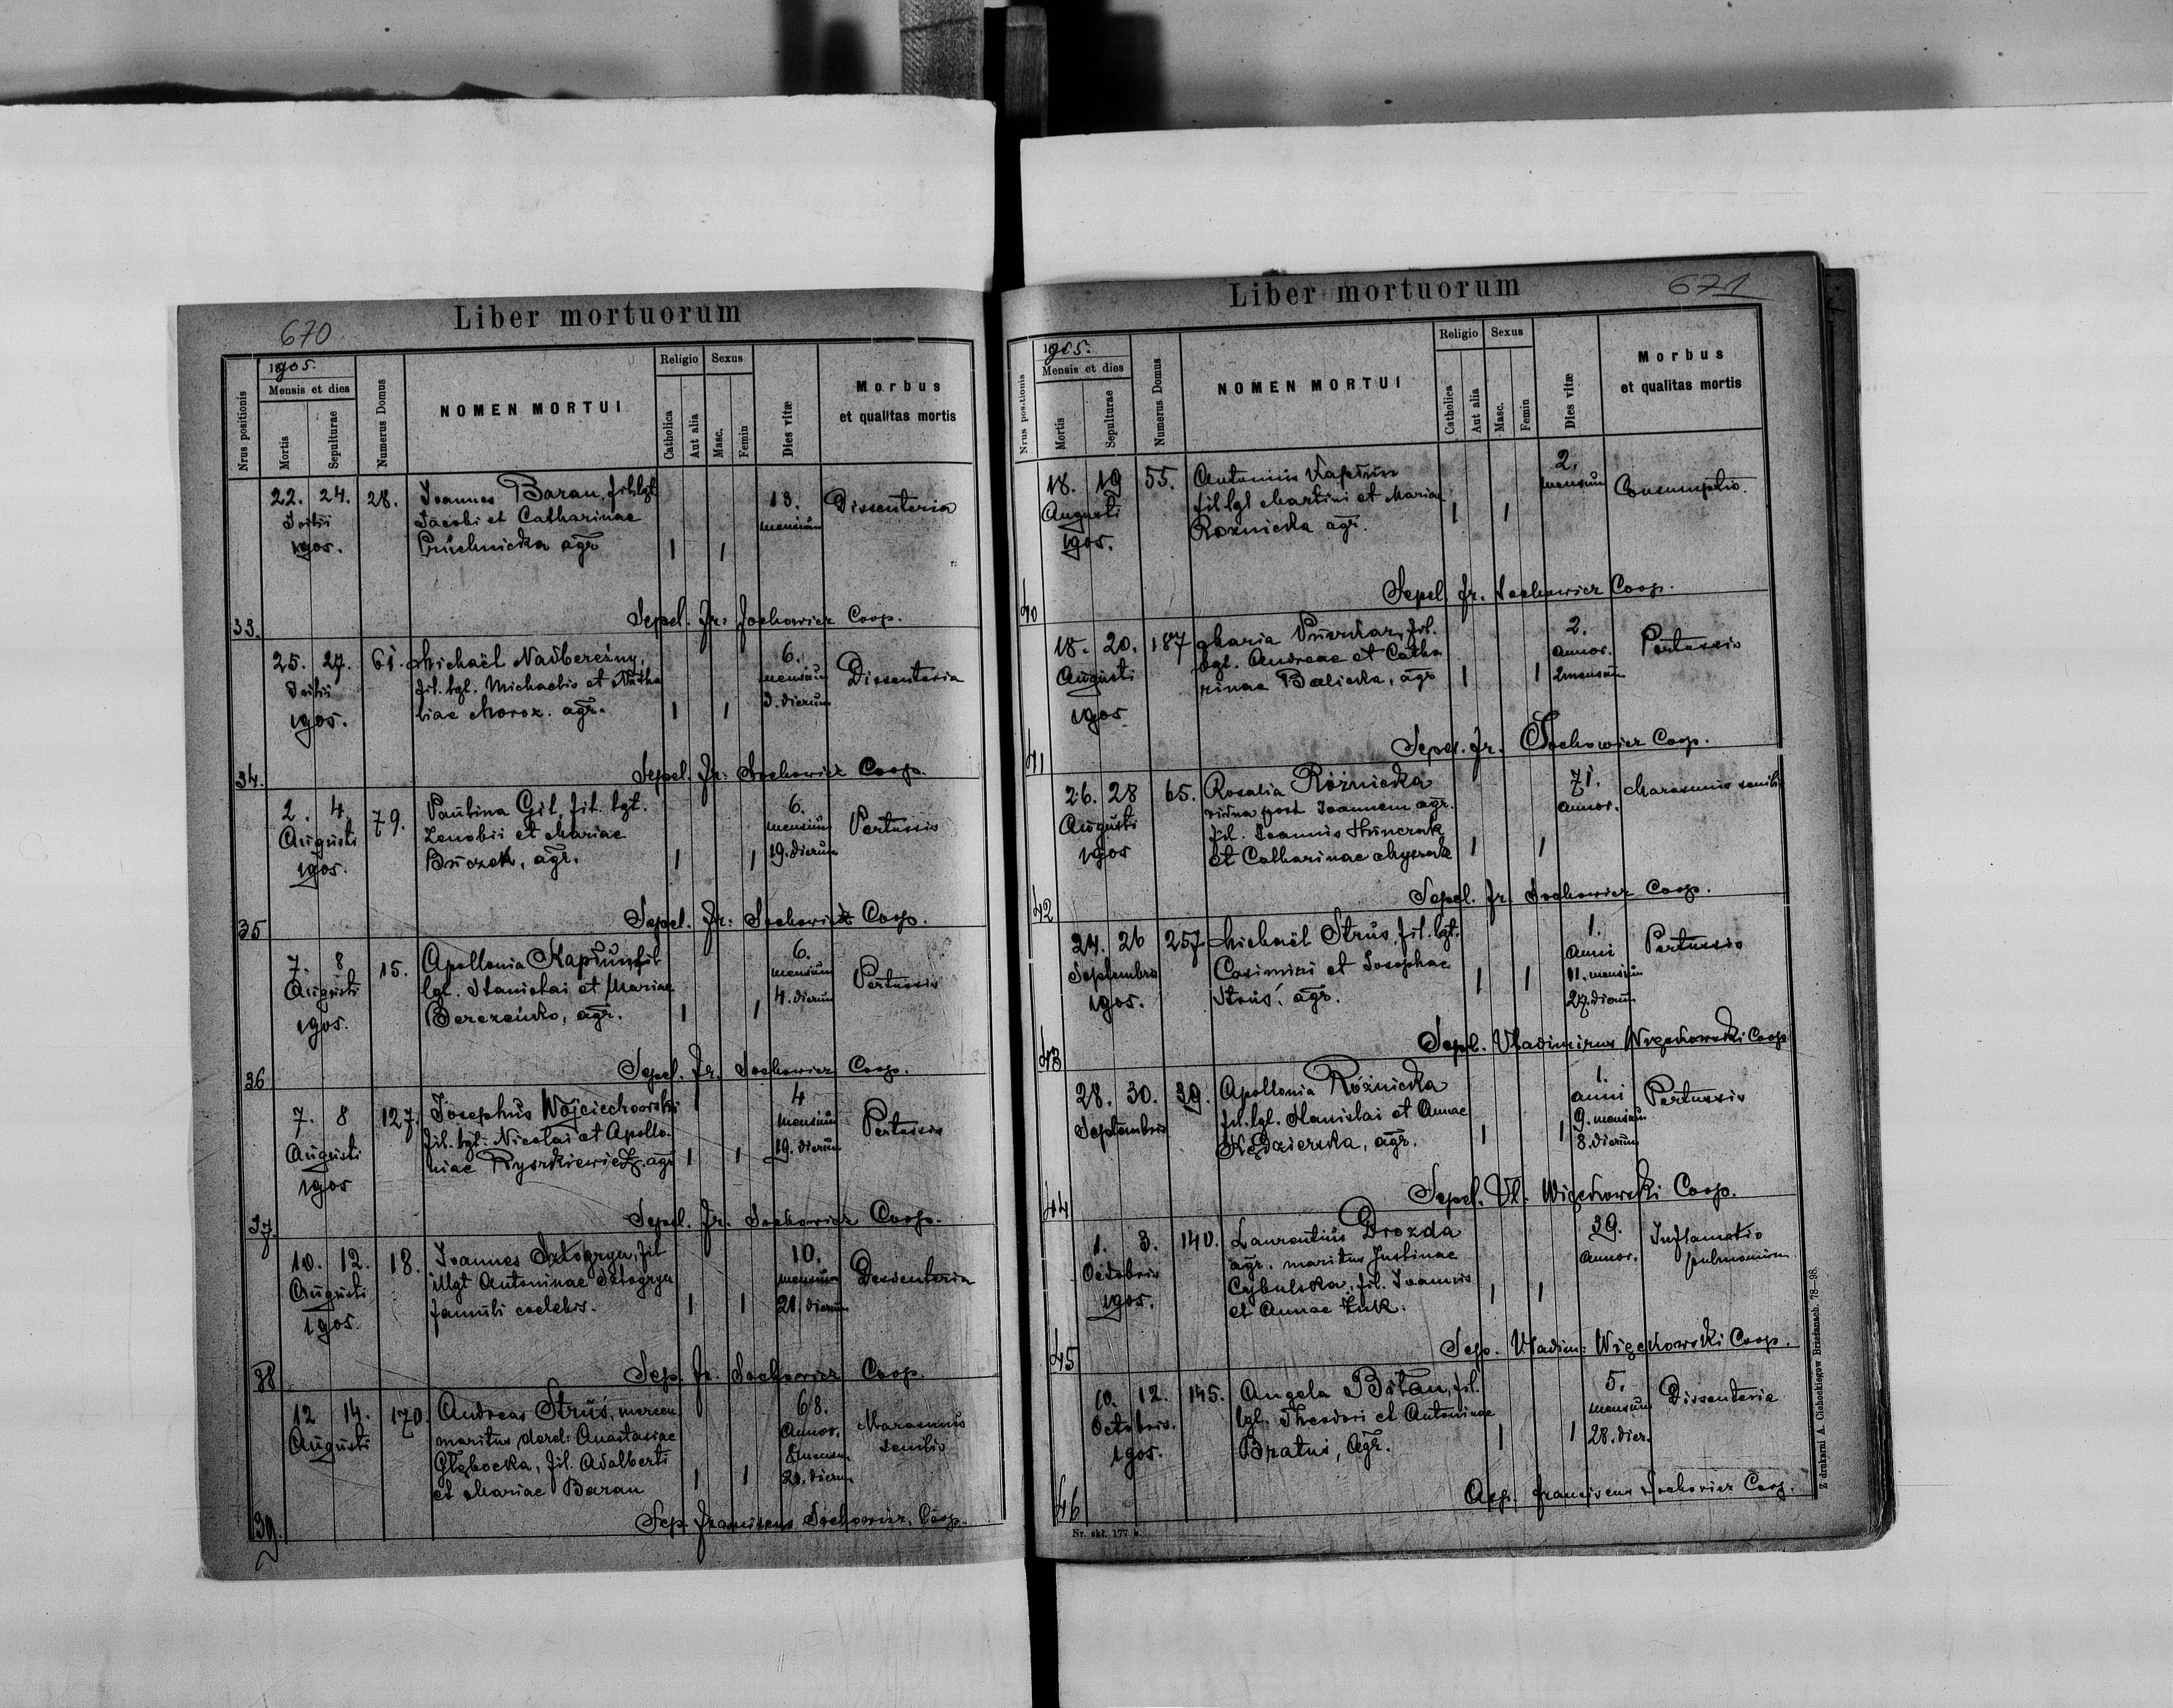 670
Liber mortuorum
Nrus positionis
1905.
Mensis et dies
Mortis
Sepulturae
Numerus Domus
NOMEN MORTUI
Religio
Catholica
Aut alia
Sexus
Masc.
Femin
Dies vitæ
Morbus
et qualitas mortis
22. 24. 28. Joannes Baran, fil. lgt. 13. Dissenteria
Julii Jacobi et Catharinae mensium
1905. Pruchnicka agr. 1 1
33. Sepel. Fr. Sochowicz Coop.
25. 27. 61. Michaël Nadbereżny, 6. Dissenteria
Julii fil. lgl. Michaelis et Natha mensium
1905. liae Moroz. agr. 1 1 3. dierum
34. Sepel. Fr. Sochowicz Coop.
2. 4. 79. Paulina Gil, fil. lgt. 6. Pertussis
Augusti Zenobii et Mariae mensium
1905. Buczek, agr. 1 1 19. dierum
35 Sepel. Fr. Sochowicz Coop.
7. 8 15. Apollonia Kapłun, fil 6. Pertussis
Augusti lgl. Stanislai et Mariae mensium
1905. Berezeńko, agr. 1 1 4. dierum
36 Sepel. Fr. Sochowicz Coop.
7. 8 127. Josephus Wojciechowski 4 Pertussis
Augusti fil. lgl. Nicolai et Apollo- mensium
1905 niae Ryszkiewicz. agr 1 1 19. dierum
37. Sepel. Fr. Sochowicz Coop.
10. 12. 18. Joannes Sztogryn, fil 10. Dessenteria
Augusti illgt Antoninae Sztogryn mensium
1905. famuli coelebis. 1 1 21. dierum
38 Sep. Fr. Sochowicz Coop.
12 14. 170. Andreas Struś, mercen. 68. Marasmus
Augusti maritus derel: Anastasiae Annor. senilis
Głębocka, fil. Adalberti 8 mensu
et Mariae Baran 1 1 21. dierum
39. Sep. Franciscus Sochowicz, Coop.
671
Liber mortuorum
Nrus positionis
1905.
Mensis et dies
Mortis
Sepulturae
Numerus Domus
NOMEN MORTUI
Religio
Catholica
Aut alia
Sexus
Masc.
Femin
Dies vitæ
Morbus
et qualitas mortis
18. 19 55. Antonius Kapłun 2. Consumptio.
Augusti fil lgl Martini et Mariae mensium
1905. Roznicka agr. 1 1
40 Sepel. Fr. Sochowicz Coop.
18. 20. 187 Maria fil. 2. Pertussis
Augusti lgl. Andreae et Catha annor.
1905 rinae Balicka, agr 1 1 2 mensium
41 Sepel. Fr. Sochowicz Coop.
26. 28 65. Rosalia Różnicka 71. Marasmus senilis
Augusti vidua post Joannem agr. annor.
1905 fil. Joannis Hunczak
et Catharinae 1 1
42 Sepel. Fr. Sochowicz Coop.
24. 26 257. Michaël Struś, fil. lgt. 1. Pertussis
Septembris Casimiri et Josephae Anni
1905. Struś, agr. 1 1 11. mensium
27. dierum
43 Sepel. Vladimirus Więckowski Coop
28. 30. 39. Apollonia Różnicka 1. Pertussis
Septembris fil. lgl. Stanislai et Annae anni
Kędzierska, agr. 1 1 9. mensium
8. dierum
44 Sepel. Vl. Więckowski Coop.
1. 3. 140. Laurentius Drozda 39. Inflamatio
Octobris agr. maritus Justinae Annor. pulmonum
1905. Cybulska, fil. Joannis
et Annae Żuk. 1 1
45 Sep. Vladim: Więckowski Coop.
10. 12. 145. Angela Bitan, fil. 5. Dissenteria
Octobris. lgl. Theodori et Antoninae mensium
1905. Bratuś, Agr. 1 1 28. dier.
46 Franciscus Sochowicz Coop.
Nr. skł. 177 b.
Z drukarni A. Cichockiegow Brzeżanach. 78—98.